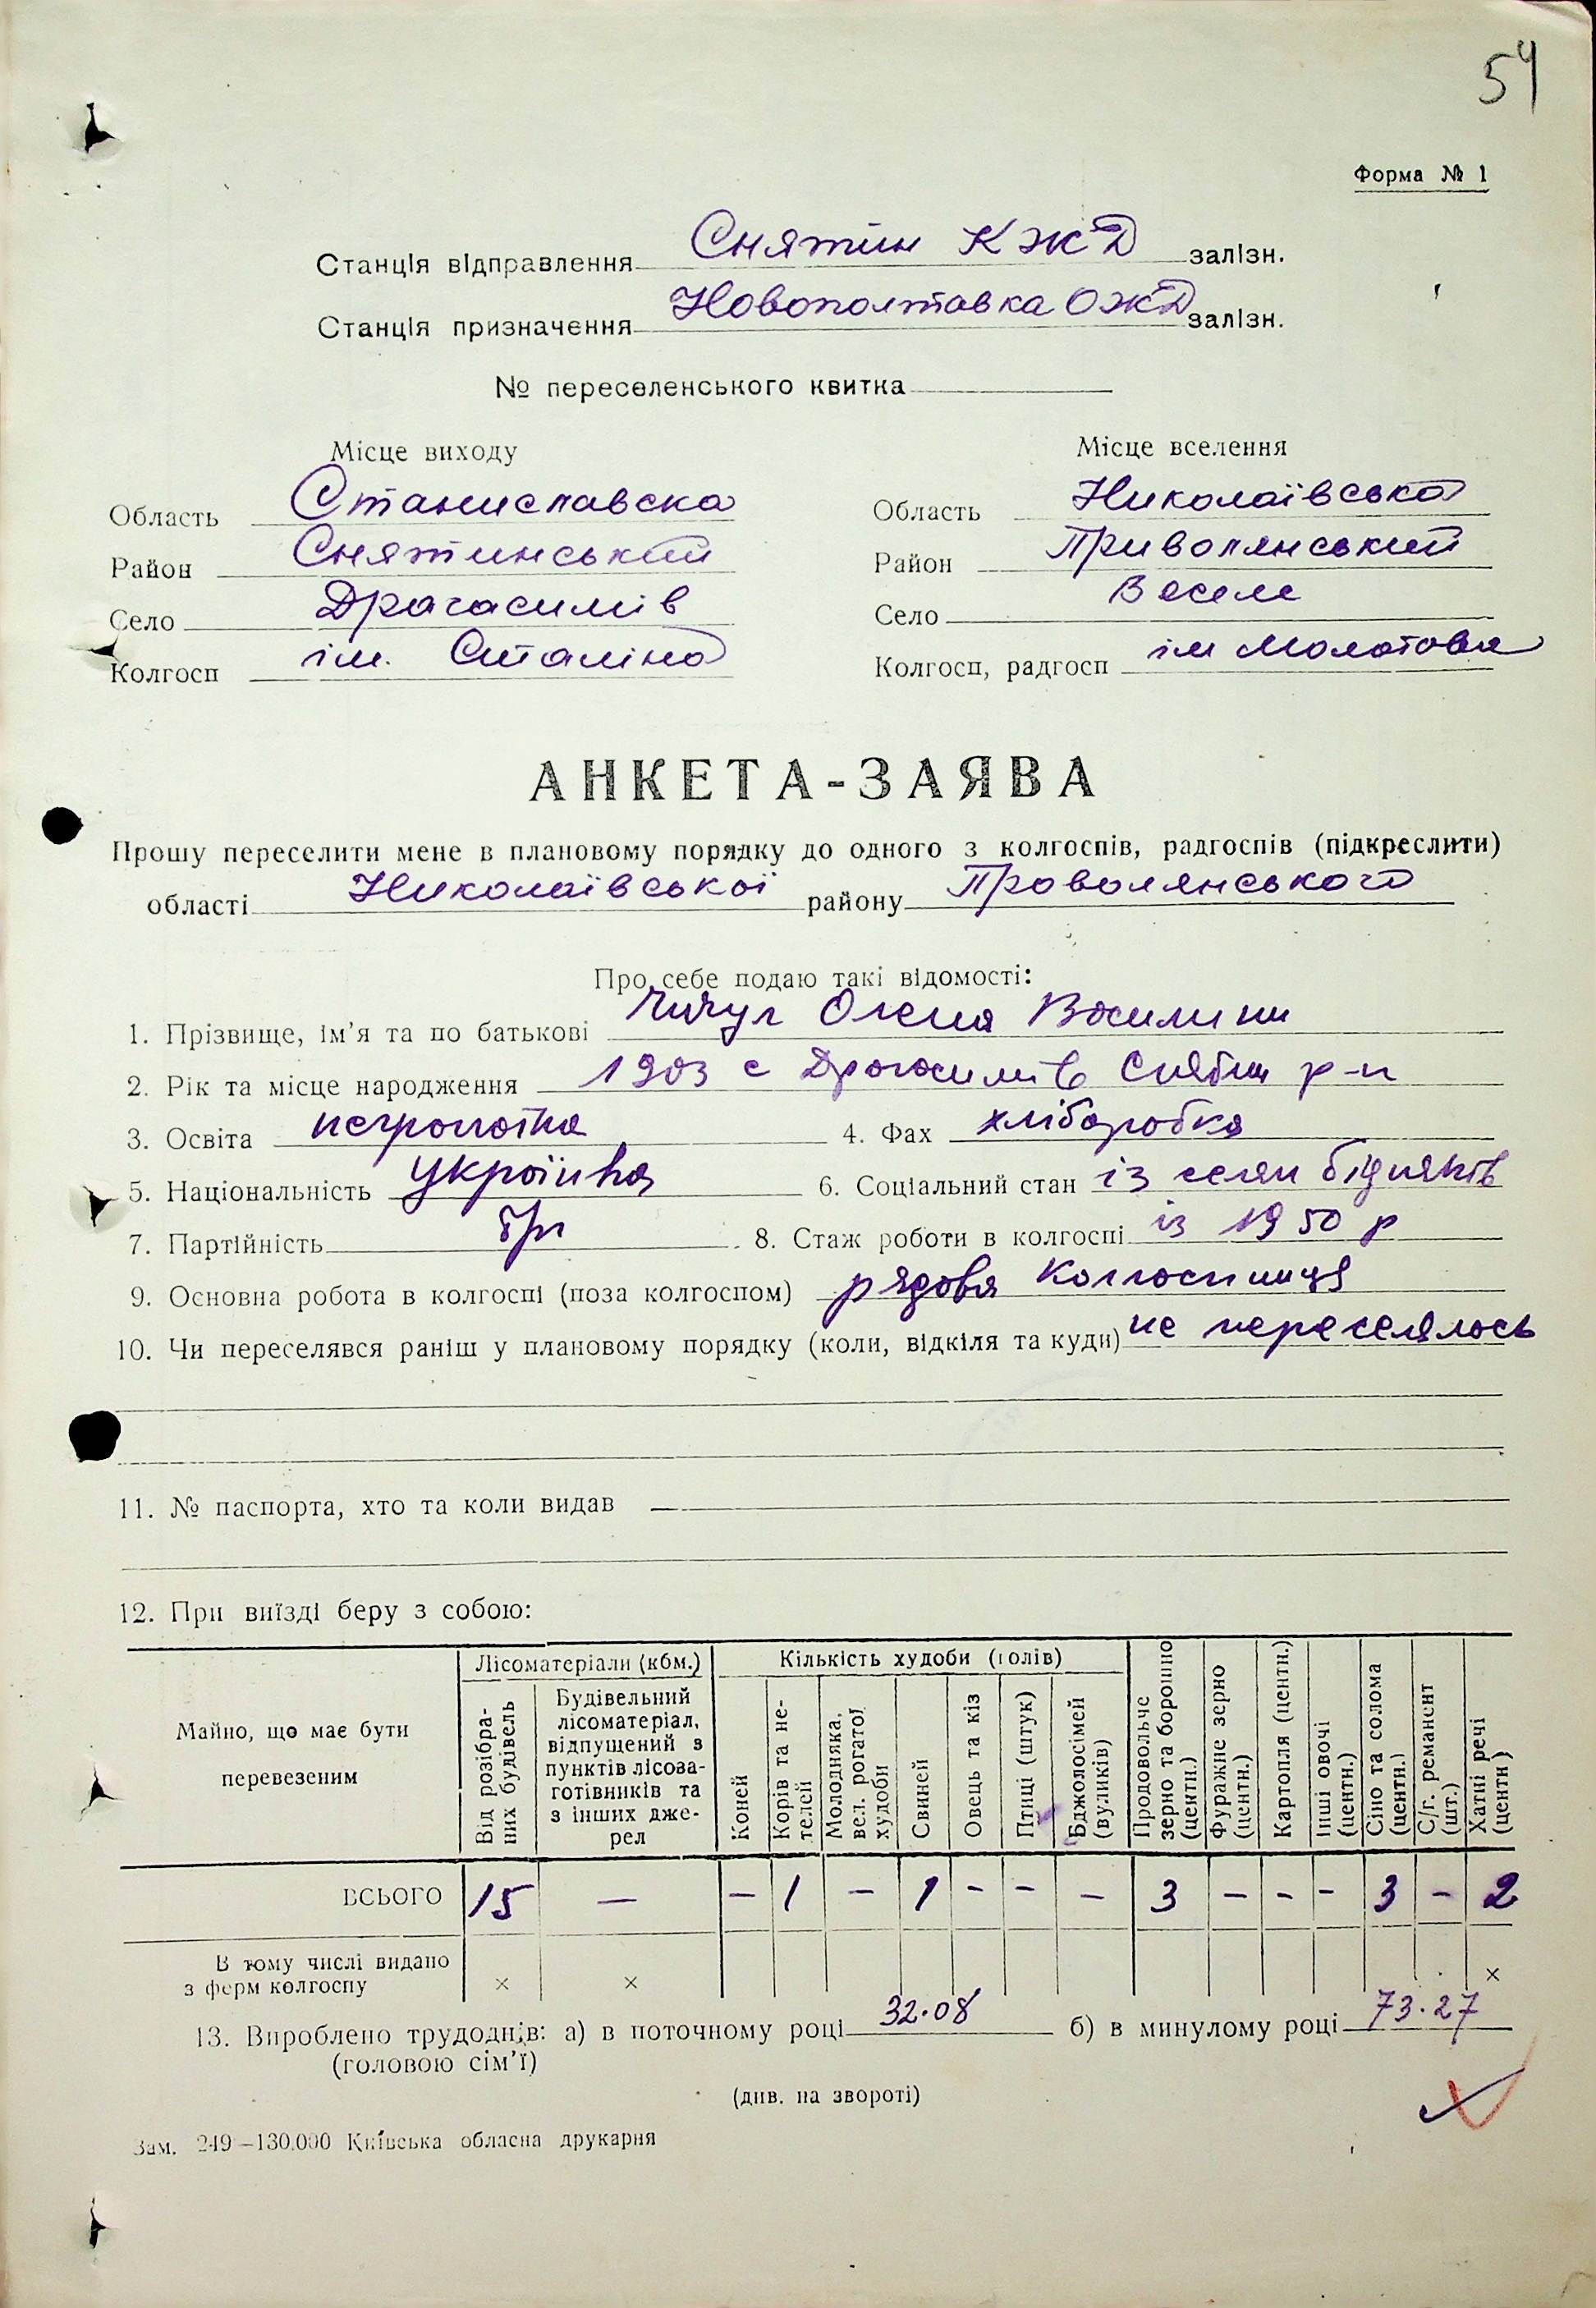 54
Форма № 1
Станція відправлення Снятин КЖД залізн.
Станція призначення Новополтавка ОЖД залізн.
№ переселенського квитка
Місце виходу
Місце вселення
Область Станиславска
Область Николаївська
Район Снятинський
Район Приволянський
Село Драгасимів
Село Веселе
Колгосп ім. Сталіна
Колгосп, радгосп ім Молотова
АНКЕТА-ЗАЯВА
Прошу переселити мене в плановому порядку до одного з колгоспів, радгоспів (підкреслити)
області Николаївської району Проволянського
Про себе подаю такі відомості:
1. Прізвище, ім'я та по батькові Олена
2. Рік та місце народження 1903 с Драгасимів Снятин р-н
3. Освіта неграмотна 4. Фах хліборобка
5. Національність українка 6. Соціальний стан із селян бідняків
7. Партійність б/п 8. Стаж роботи в колгоспі із 1950 р
9. Основна робота в колгоспі (поза колгоспом) рядова колгоспниця
10. Чи переселявся раніш у плановому порядку (коли, відкіля та куди) не переселялось
11. № паспорта, хто та коли видав
12. При виїзді беру з собою:
Майно, що має бути перевезеним
Лісоматеріали (кбм.)
Кількість худоби (голів)
Від розібраних будівель
Будівельний лісоматеріал, відпущений з пунктів лісозаготівників та з інших джерел
Коней
Корів та нетелей
Молодняка, вел. рогатої худоби
Свиней
Овець та кіз
Птиці (штук)
Бджолосімей (вуликів)
Продовольче зерно та борошно (центн.)
Фуражне зерно (центн.)
Картопля (центн.)
Інші овочі (центн.)
Сіно та солома (центн.)
С/г. реманент (шт.)
Хатні речі (центн)
ВСЬОГО 15 — – 1 – 1 - - – 3 – - - 3 - 2
В тому числі видано
з ферм колгоспу × × ×
13. Вироблено трудоднів: а) в поточному році 32.08 б) в минулому році 73.27
(головою сім'ї)
(див. на звороті)
Зам. 249—130.000 Київська обласна друкарня